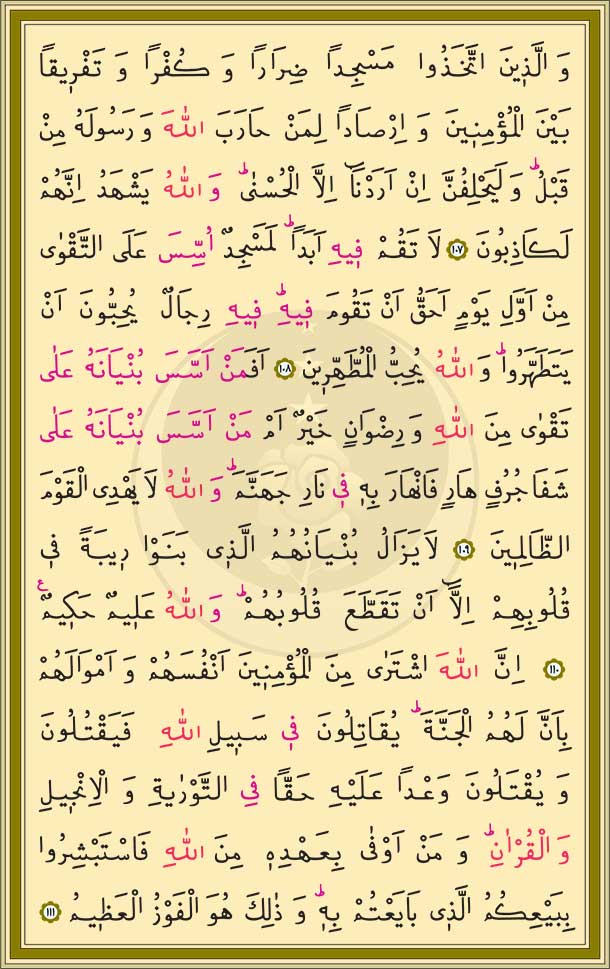 وَ الَّذِينَ اتَّخَذُوا مَسْجِداً ضِرَاراً وَ كُفْراً وَ تَفْرِيقاً
بَيْنَ الْمُؤْمِنِينَ وَ اِرْصَاداً لِمَنْ حَارَبَ اللّٰهَ وَ رَسُولَهُ مِنْ
قَبْلُ ۜ وَ لَيَحْلِفُنَّ اِنْ اَرَدْنَٓا اِلَّا الْحُسْنٰى ۜ وَ اللّٰهُ يَشْهَدُ اِنَّهُمْ
لَكَاذِبُونَ ١٠٧ لَا تَقُمْ فِيهِ اَبَداً ۜ لَمَسْجِدٌ اُسِّسَ عَلَى التَّقْوٰى
مِنْ اَوَّلِ يَوْمٍ اَحَقُّ اَنْ تَقُومَ فِيهِ ۜ فِيهِ رِجَالٌ يُحِبُّونَ اَنْ
يَتَطَهَّرُوا ۜ وَ اللّٰهُ يُحِبُّ الْمُطَّهِّرِينَ ١٠٨ اَفَمَنْ اَسَّسَ بُنْيَانَهُ عَلٰى
تَقْوٰى مِنَ اللّٰهِ وَ رِضْوَانٍ خَيْرٌ اَمْ مَنْ اَسَّسَ بُنْيَانَهُ عَلٰى
شَفَا جُرُفٍ هَارٍ فَانْهَارَ بِهٖ فٖي نَارِ جَهَنَّمَ ۜ وَ اللّٰهُ لَا يَهْدِى الْقَوْمَ
الظَّالِمِينَ ١٠٩ لَا يَزَالُ بُنْيَانُهُمُ الَّذٖى بَنَوْا رٖيبَةً فٖى
قُلُوبِهِمْ اِلَّٓا اَنْ تَقَطَّعَ قُلُوبُهُمْ ۜ وَ اللّٰهُ عَلِيمٌ حَكِيمٌ ع
١١٠ اِنَّ اللّٰهَ اشْتَرٰى مِنَ الْمُؤْمِنِينَ اَنْفُسَهُمْ وَ اَمْوَالَهُمْ
بِاَنَّ لَهُمُ الْجَنَّةَ ۜ يُقَاتِلُونَ فٖي سَبِيلِ اللّٰهِ فَيَقْتُلُونَ
وَ يُقْتَلُونَ وَعْداً عَلَيْهِ حَقًّا فِي التَّوْرٰيةِ وَ الْاِنْجِيلِ
وَ الْقُرْاٰنِ ۜ وَ مَنْ اَوْفٰى بِعَهْدِهٖ مِنَ اللّٰهِ فَاسْتَبْشِرُوا
بِبَيْعِكُمُ الَّذٖى بَايَعْتُمْ بِهٖ ۜ وَ ذٰلِكَ هُوَ الْفَوْزُ الْعَظِيمُ ١١١